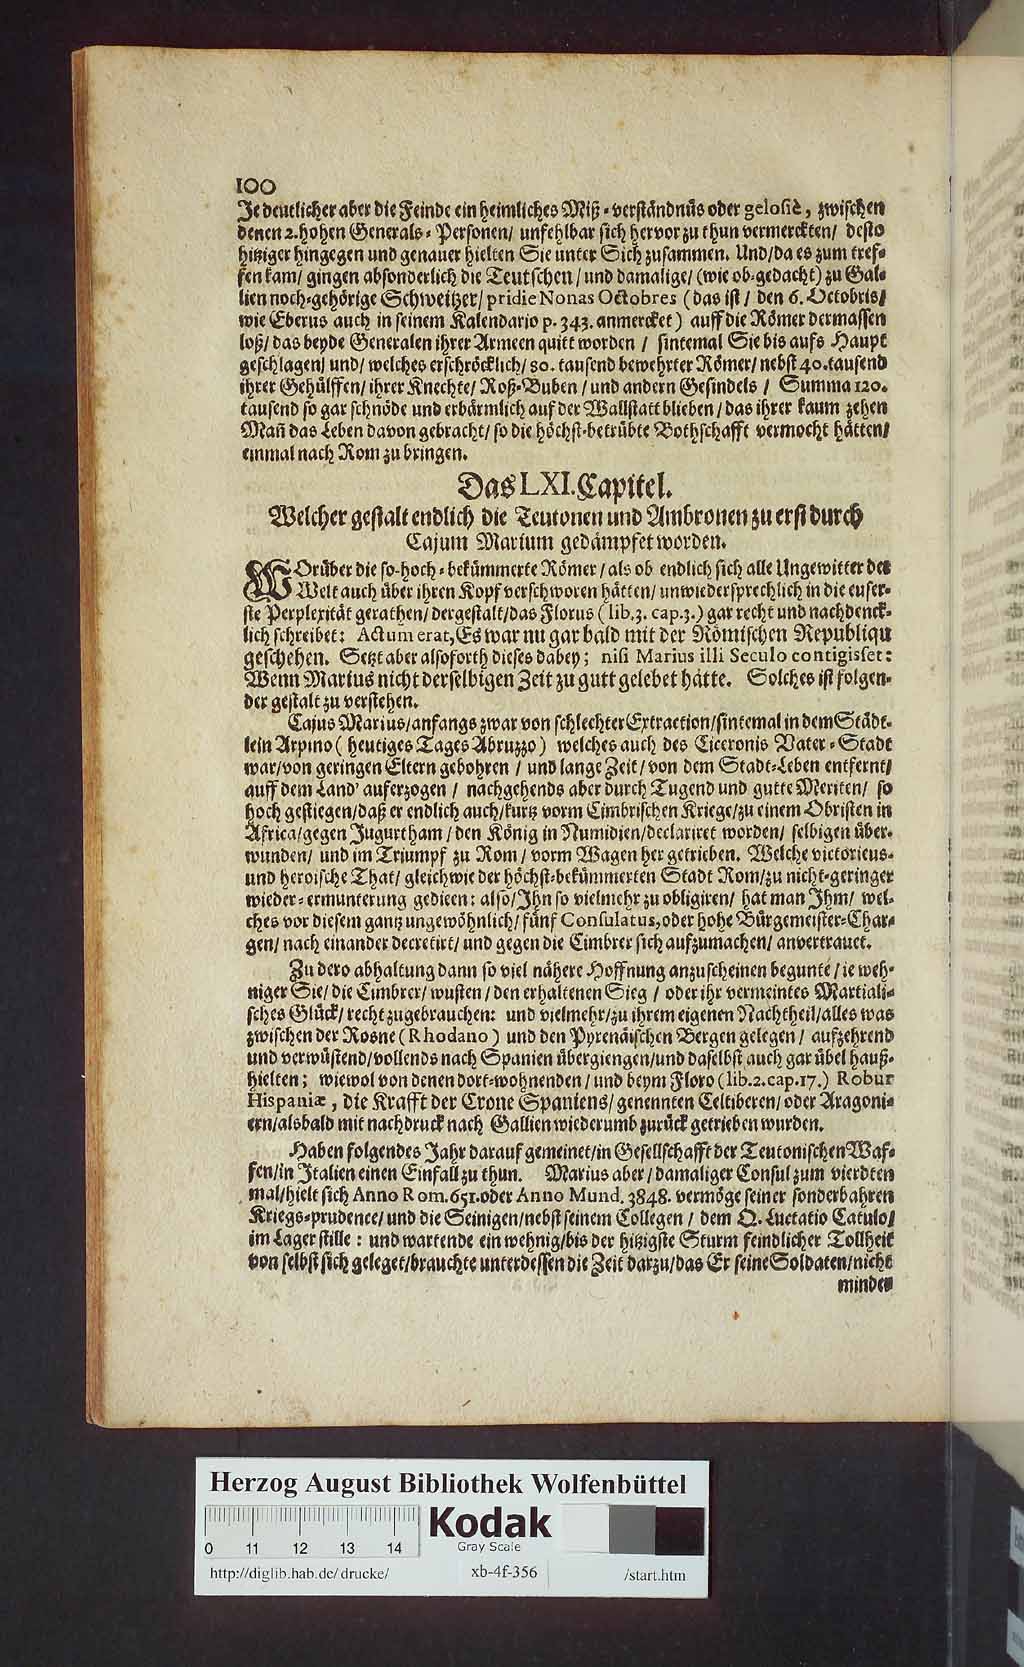 100
Je deutlicher aber die Feinde ein heimliches Miß-verständnüs oder gelosiè, zwischen
denen 2. hohen Generals-Personen/ unfehlbar sich hervor zu thun vermerckten/ desto
hitziger hingegen und genauer hielten Sie unter Sich zusammen. Und/da es zum tref-
fen kam/ gingen absonderlich die Teutschen/ und damalige/ (wie ob-gedacht) zu Gal-
lien noch-gehörige Schweitzer/ pridie Nonas Octobres (das ist/ den 6. Octobris/
wie Eberus auch in seinem Kalendario p. 343. anmercket) auff die Römer dermassen
loß/ das beyde Generalen ihrer Armeen quitt worden/ sintemal Sie bis aufs Haupt
geschlagen/ und/ welches erschröcklich/ 80. tausend bewehrter Römer/ nebst 40. tausend
ihrer Gehülffen/ ihrer Knechte/ Roß-Buben/ und andern Gesindels/ Summa 120.
tausend so gar schnöde und erbärmlich auf der Wallstatt blieben/ das ihrer kaum zehen
Mañ das Leben davon gebracht/ so die höchst-betrübte Bothschafft vermocht hätten/
einmal nach Rom zu bringen.
Das LXI. Capitel.
Welcher gestalt endlich die Teutonen und Ambronen zu erst durch
Cajum Marium gedämpfet worden.
WOrüber die so-hoch-bekümmerte Römer/ als ob endlich sich alle Ungewitter der
Welt auch über ihren Kopf verschworen hätten/ unwiedersprechlich in die euser-
ste Perplexität gerathen/ dergestalt/ das Florus (lib. 3. cap. 3.) gar recht und nachdenck-
lich schreibet: Actum erat, Es war nu gar bald mit der Römischen Republiqu
geschehen. Setzt aber alsoforth dieses dabey; nisi Marius illi Seculo contigisset:
Wenn Marius nicht derselbigen Zeit zu gutt gelebet hätte. Solches ist folgen-
der gestalt zu verstehen.
Cajus Marius/ anfangs zwar von schlechter Extraction/ sintemal in dem Städt-
lein Arpino (heutiges Tages Abruzzo) welches auch des Ciceronis Vater-Stadt
war/ von geringen Eltern gebohren/ und lange Zeit/ von dem Stadt-Leben entfernt/
auff dem Land' auferzogen/ nachgehends aber durch Tugend und gutte Meriten/ so
hoch gestiegen/ daß er endlich auch/ kurtz vorm Cimbrischen Kriege/ zu einem Obristen in
Africa/ gegen Jugurtham/ den König in Numidien/ declariret worden/ selbigen über-
wunden/ und im Triumpf zu Rom/ vorm Wagen her getrieben. Welche victorieus-
und heroische That/ gleichwie der höchst-bekümmerten Stadt Rom/ zu nicht-geringer
wieder-ermunterung gedieen: also/ Ihn so vielmehr zu obligiren/ hat man Ihm/ wel-
ches vor diesem gantz ungewöhnlich/ fünf Consulatus, oder hohe Bürgemeister-Char-
gen/ nach einander decretirt/ und gegen die Cimbrer sich aufzumachen/ anvertrauet.
Zu dero abhaltung dann so viel nähere Hoffnung anzuscheinen begunte/ ie weh-
niger Sie/ die Cimbrer/ wusten/ den erhaltenen Sieg/ oder ihr vermeintes Martiali-
sches Glück/ recht zugebrauchen: und vielmehr/ zu ihrem eigenen Nachtheil/ alles was
zwischen der Rosne (Rhodano) und den Pyrenäischen Bergen gelegen/ aufzehrend
und verwüstend/ vollends nach Spanien übergiengen/ und daselbst auch gar übel hauß-
hielten; wiewol von denen dort-wohnenden/ und beym Floro (lib. 2. cap. 17.) Robur
Hispaniæ, die Krafft der Crone Spaniens/ genennten Celtiberen/ oder Aragoni-
ern/ alsbald mit nachdruck nach Gallien wiederumb zurück getrieben wurden.
Haben folgendes Jahr darauf gemeinet/ in Gesellschafft der Teutonischen Waf-
fen/ in Italien einen Einfall zu thun. Marius aber/ damaliger Consul zum vierdten
mal/ hielt sich Anno Rom. 651. oder Anno Mund. 3848. vermöge seiner sonderbahren
Kriegs-prudence/ und die Seinigen/ nebst seinem Collegen/ dem Q. Luctatio Catulo/
im Lager stille: und wartende ein wehnig/ bis der hitzigste Sturm feindlicher Tollheit
von selbst sich geleget/ brauchte unterdessen die Zeit darzu/ das Er seine Soldaten/ nicht
minder
Herzog August Bibliothek Wolfenbüttel
Kodak
Gray Scale
0 11 12 13 14
http://diglib.hab.de/drucke/ xb-4f-356 /start.htm